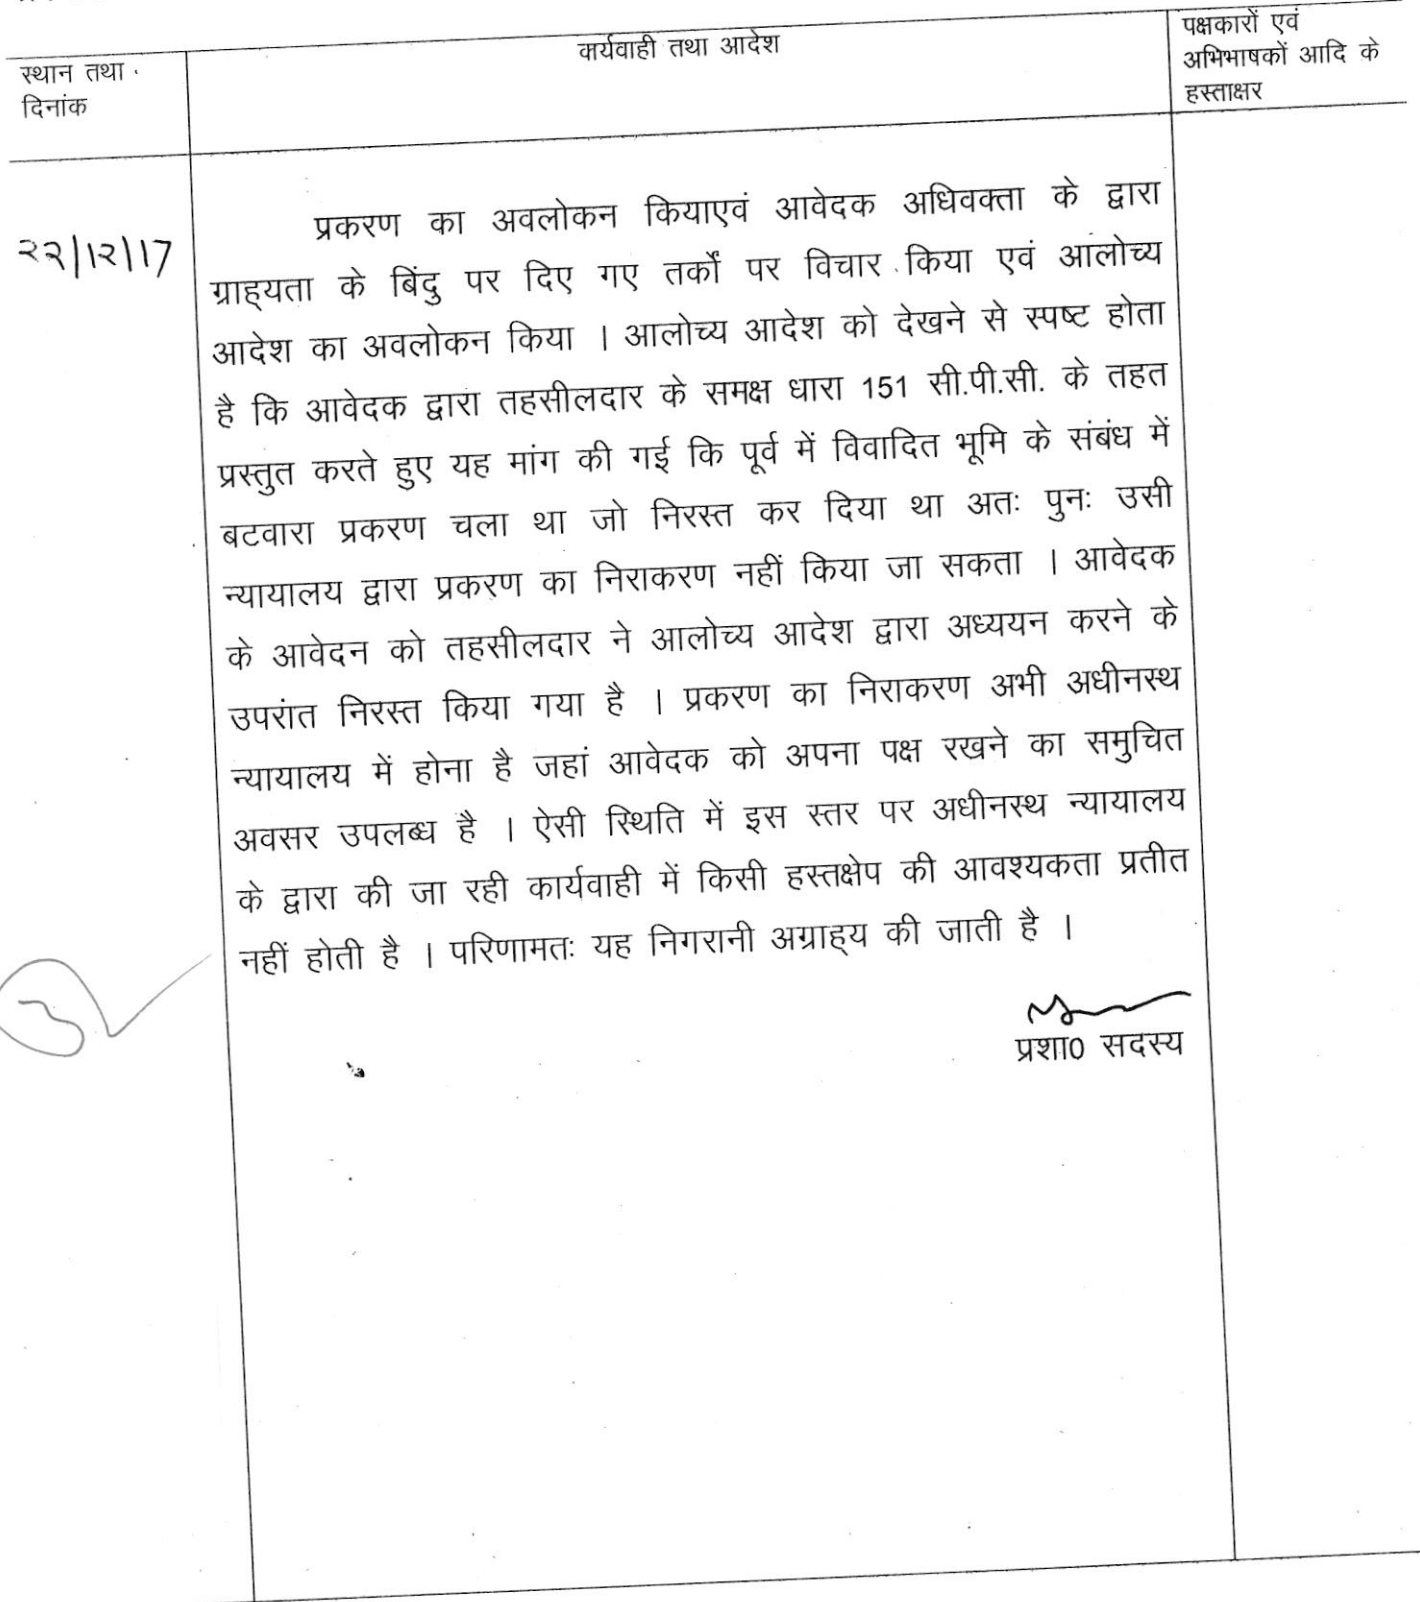 स्थान तथा
दिनांक
कार्यवाही तथा आदेश
पक्षकारों एवं
अभिभाषकों आदि के
हस्ताक्षर
२२/१२/17
प्रकरण का अवलोकन कियाएवं आवेदक अधिवक्ता के द्वारा
ग्राह्यता के बिंदु पर दिए गए तर्कों पर विचार किया एवं आलोच्य
आदेश का अवलोकन किया । आलोच्य आदेश को देखने से स्पष्ट होता
है कि आवेदक द्वारा तहसीलदार के समक्ष धारा 151 सी.पी.सी. के तहत
प्रस्तुत करते हुए यह मांग की गई कि पूर्व में विवादित भूमि के संबंध में
बटवारा प्रकरण चला था जो निरस्त कर दिया था अतः पुनः उसी
न्यायालय द्वारा प्रकरण का निराकरण नहीं किया जा सकता । आवेदक
के आवेदन को तहसीलदार ने आलोच्य आदेश द्वारा अध्ययन करने के
उपरांत निरस्त किया गया है । प्रकरण का निराकरण अभी अधीनस्थ
न्यायालय में होना है जहां आवेदक को अपना पक्ष रखने का समुचित
अवसर उपलब्ध है । ऐसी स्थिति में इस स्तर पर अधीनस्थ न्यायालय
के द्वारा की जा रही कार्यवाही में किसी हस्तक्षेप की आवश्यकता प्रतीत
नहीं होती है । परिणामतः यह निगरानी अग्राह्य की जाती है ।
प्रशा0 सदस्य